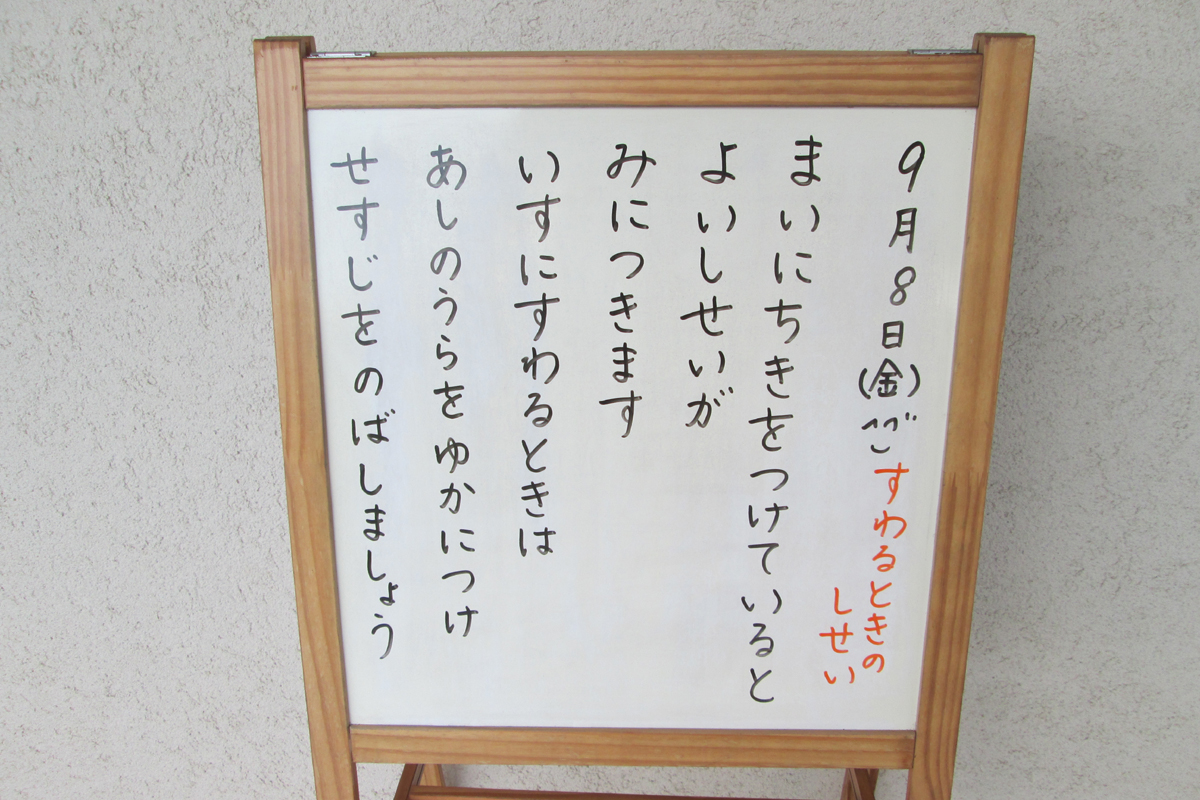 9月8日(金)すわるときの
しせい
まいにちきをつけていると
よいしせいが
みにつきます
いすにすわるときは
あしのうらをゆかにつけ
せすじをのばしましょう